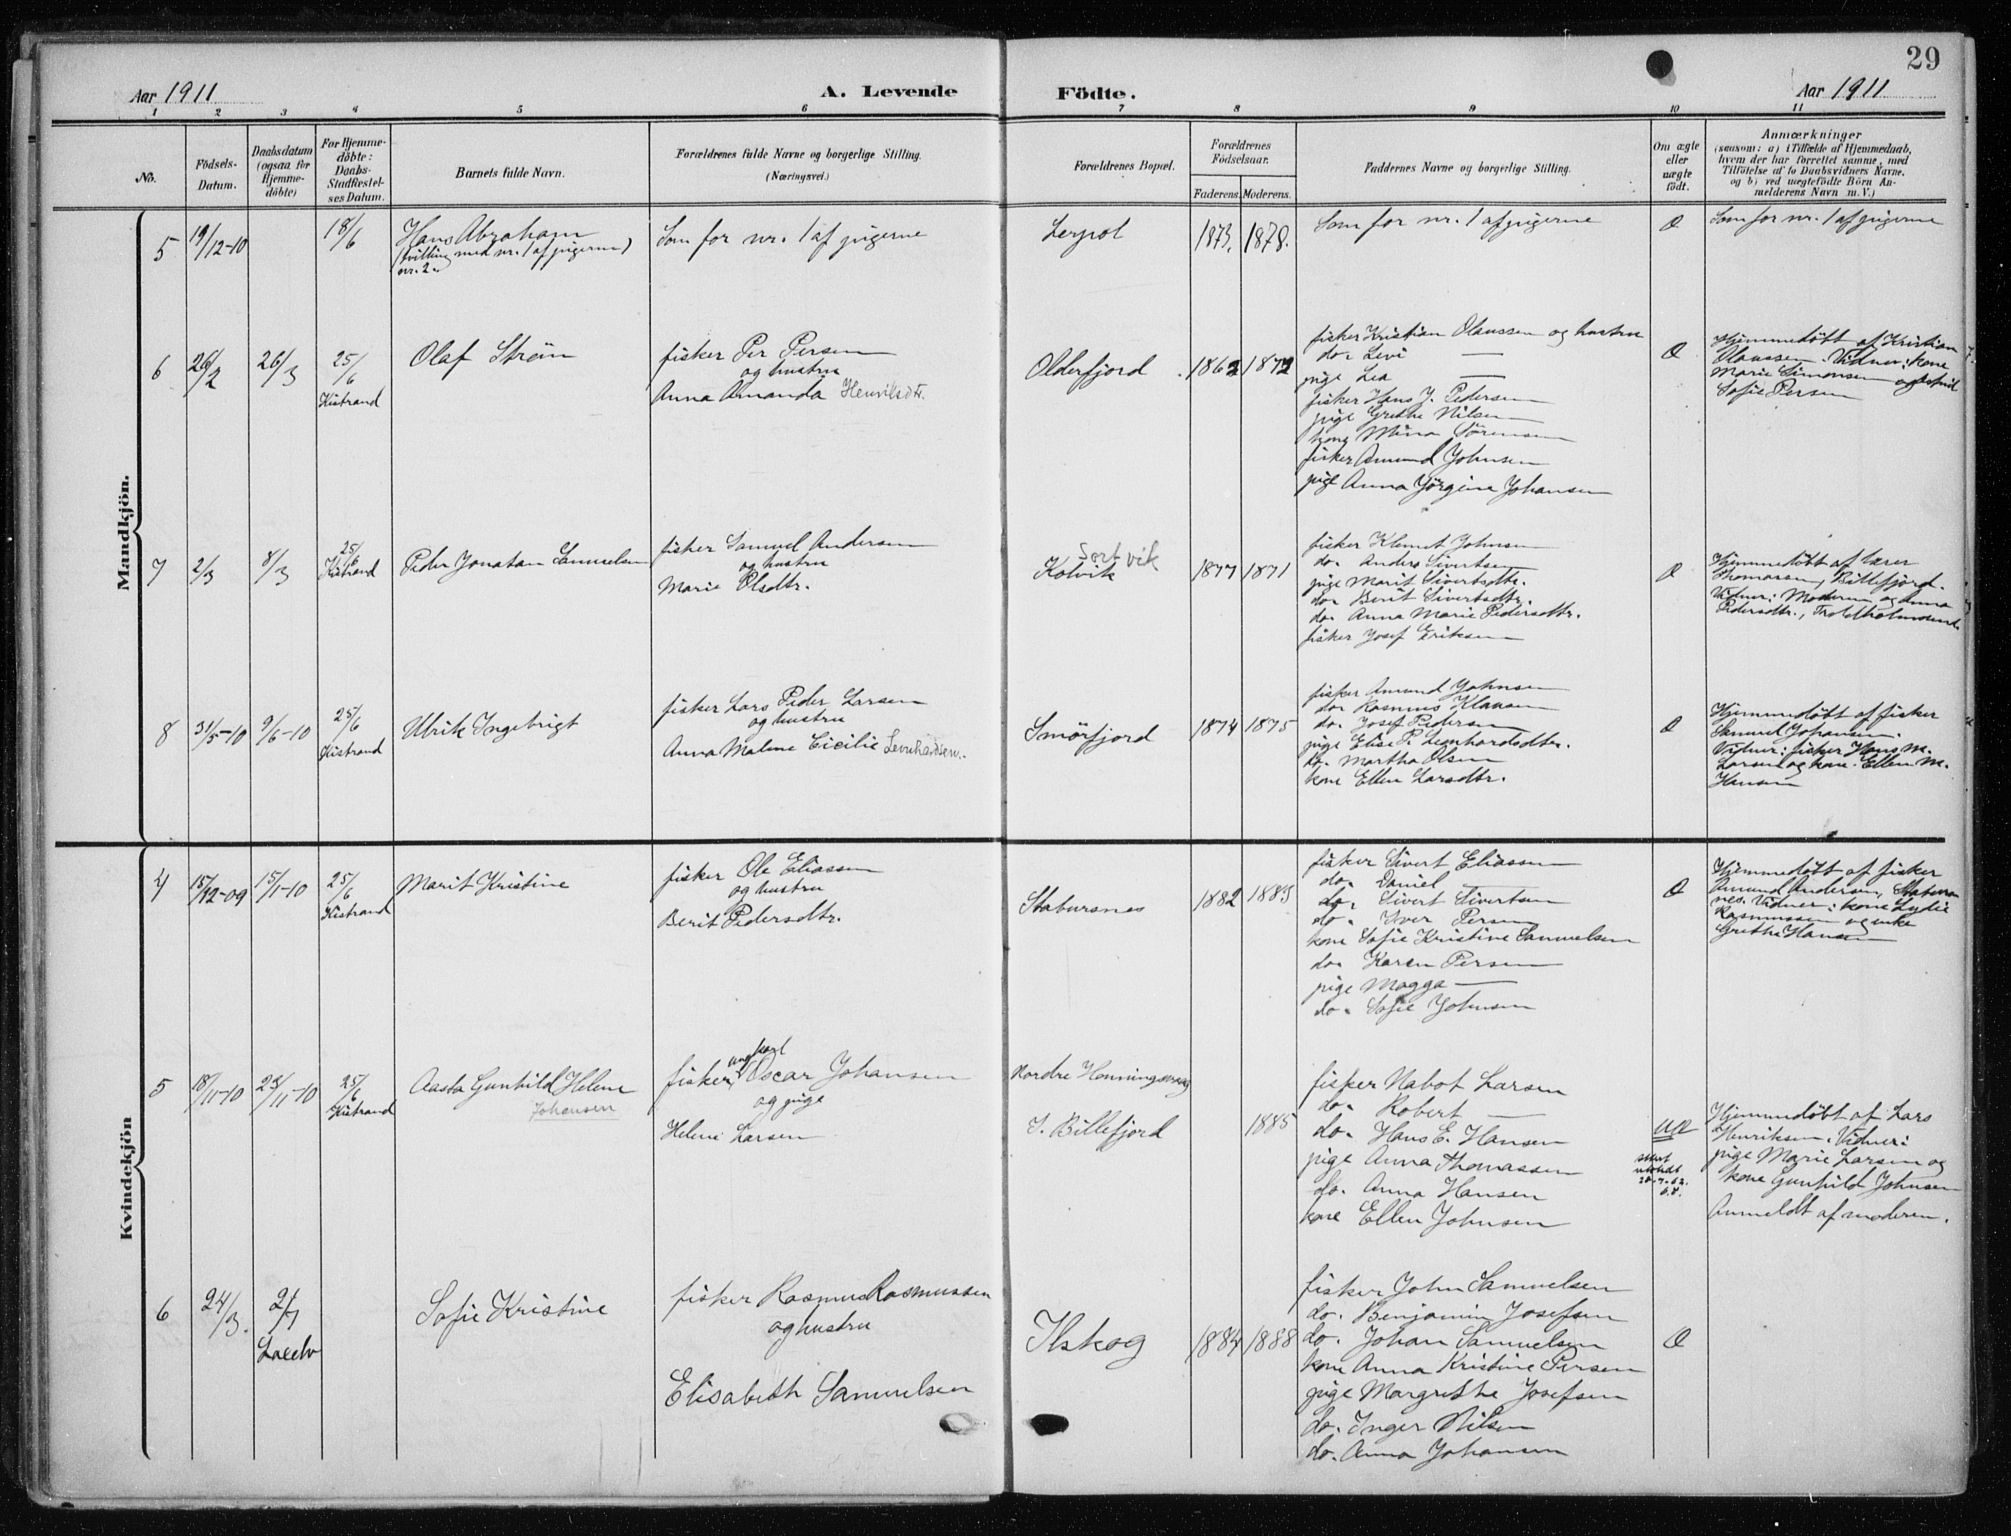 29
Aar 1911
A. Levende Födte.
Aar 1911
1 2 3 4 5 6 7 8 9 10 11
No.
Födsels-
Datum.
Daabsdatum
(ogsaa for
Hjemme-
döbte)
For Hjemme-
döbte:
Daabs-
Stadfæstel-
ses Datum.
Barnets fulde Navn.
Forældrenes fulde Navne og borgerlige Stilling.
(Næringsvei.)
Forældrenes Bopæl.
Forældrenes
Födselsaar.
Faderens. Moderens.
Faddernes Navne og borgerlige Stilling.
Om ægte
eller
uægte
födt.
Anmærkninger
(saasom: a) i Tilfælde af Hjemmedaab,
hvem der har forrettet samme, med
Tilföielse af to Daabsvidners Navne,
og b) ved uægtefödte Börn An-
melderens Navn m. V.)
Mandkjön.
5
19/12-10
18/6
Hans Abraham
(tvilling med nr. 1 af pigerne)
nr. 2.
Som for nr. 1 af pigerne
Lerpol
1873. 1878.
Som for nr. 1 af pigerne
Som for nr. 1 af pigerne
6
26/2
26/3
25/6
Kistrand
Olaf Ström
fisker Per Persen
og hustru
Anna Amanda Henriksdtr.
Olderfjord
1862 1872
fisker Kristian Olaussen og hustru
do. Levi —
pige Lea —
fisker Hans J. Pedersen
pige Grethe Nilsen
kone Mina Sörensen
fisker Amund Johnsen
pige Anna Jörgine Johansen
Hjemmedöbt af Kristian
Olaussen. Vidner: kone
Marie Simonsen og
Sofie Persen
7
2/3
8/3
25/6
Kistrand
Peder Jonatan Samuelsen
fisker Samuel Andersen
og hustru
Marie Olsdtr.
Sortvik
Kolvik
1877 1871
fisker Klemet Johnsen
do. Anders Sivertsen
pige Marit Sivertsdtr.
do. Berit Sivertsdtr.
do. Anna Marie Pedersdtr.
fisker Josef Eriksen
Hjemmedöbt af lærer
Thomassen, Billefjord.
Vidner: Moderen og Anna
Pedersdtr., Troldholmsund
8
31/5-10
9/6-10
25/6
Kistrand
Ulrik Ingebrigt
fisker Lars Peder Larsen
og hustru
Anna Malene Cicilie Levnhardsen.
Smörfjord
1874 1875
fisker Amund Johnsen
do. Rasmus Klausen
do. Josef Pedersen
pige Elise P. Leonhardsdtr.
do. Martha Olsen
kone Ellen Larsdtr.
Hjemmedöbt af fisker
Samuel Johansen.
Vidner: fisker Hans M.
Larsen og kone Ellen M.
Hansen
Kvindekjön
4
15/12-09
15/1-10
25/6
Kistrand
Marit Kristine
fisker Ole Eliassen
og hustru
Berit Pedersdtr.
Stabursnes
1882 1885
fisker Sivert Eliassen
do. Daniel —
do. Sivert Sivertsen
do. Iver Persen
kone Sofie Kristine Samuelsen
do. Karen Persen
pige Magga —
do. Sofie Johnsen
Hjemmedöbt af fisker
Amund Andersen, Staburs-
nes. Vidner: kone Lydie
Rasmussen og enke
Grethe Hansen
5
18/11-10
23/11-10
25/6
Kistrand
Aasta Gunhild Helene
Johansen
ungkarl
fisker Oscar Johansen
og pige
Helene Larsen
Nordre Honningsvaag
I. Billefjord
1885
fisker Nabot Larsen
do. Robert —
do. Hans E. Hansen
pige Anna Thomassen
do. Anna Hansen
kone Ellen Johnsen
Hjemmedöbt af Lars
Henriksen. Vidner:
pige Marie Larsen og
kone Gunhild Johnsen
Anmeldt af moderen.
6
24/3.
2/7
Laxelv
Sofie Kristine
fisker Rasmus Rasmussen
og hustru
Elisabeth Samuelsen
Ilskog
1884 1888
fisker John Samuelsen
do. Benjamin Josefsen
do. Johan Samuelsen
kone Anna Kristine Persen
pige Margrethe Josefsen
do. Inger Nilsen
do. Anna Johansen